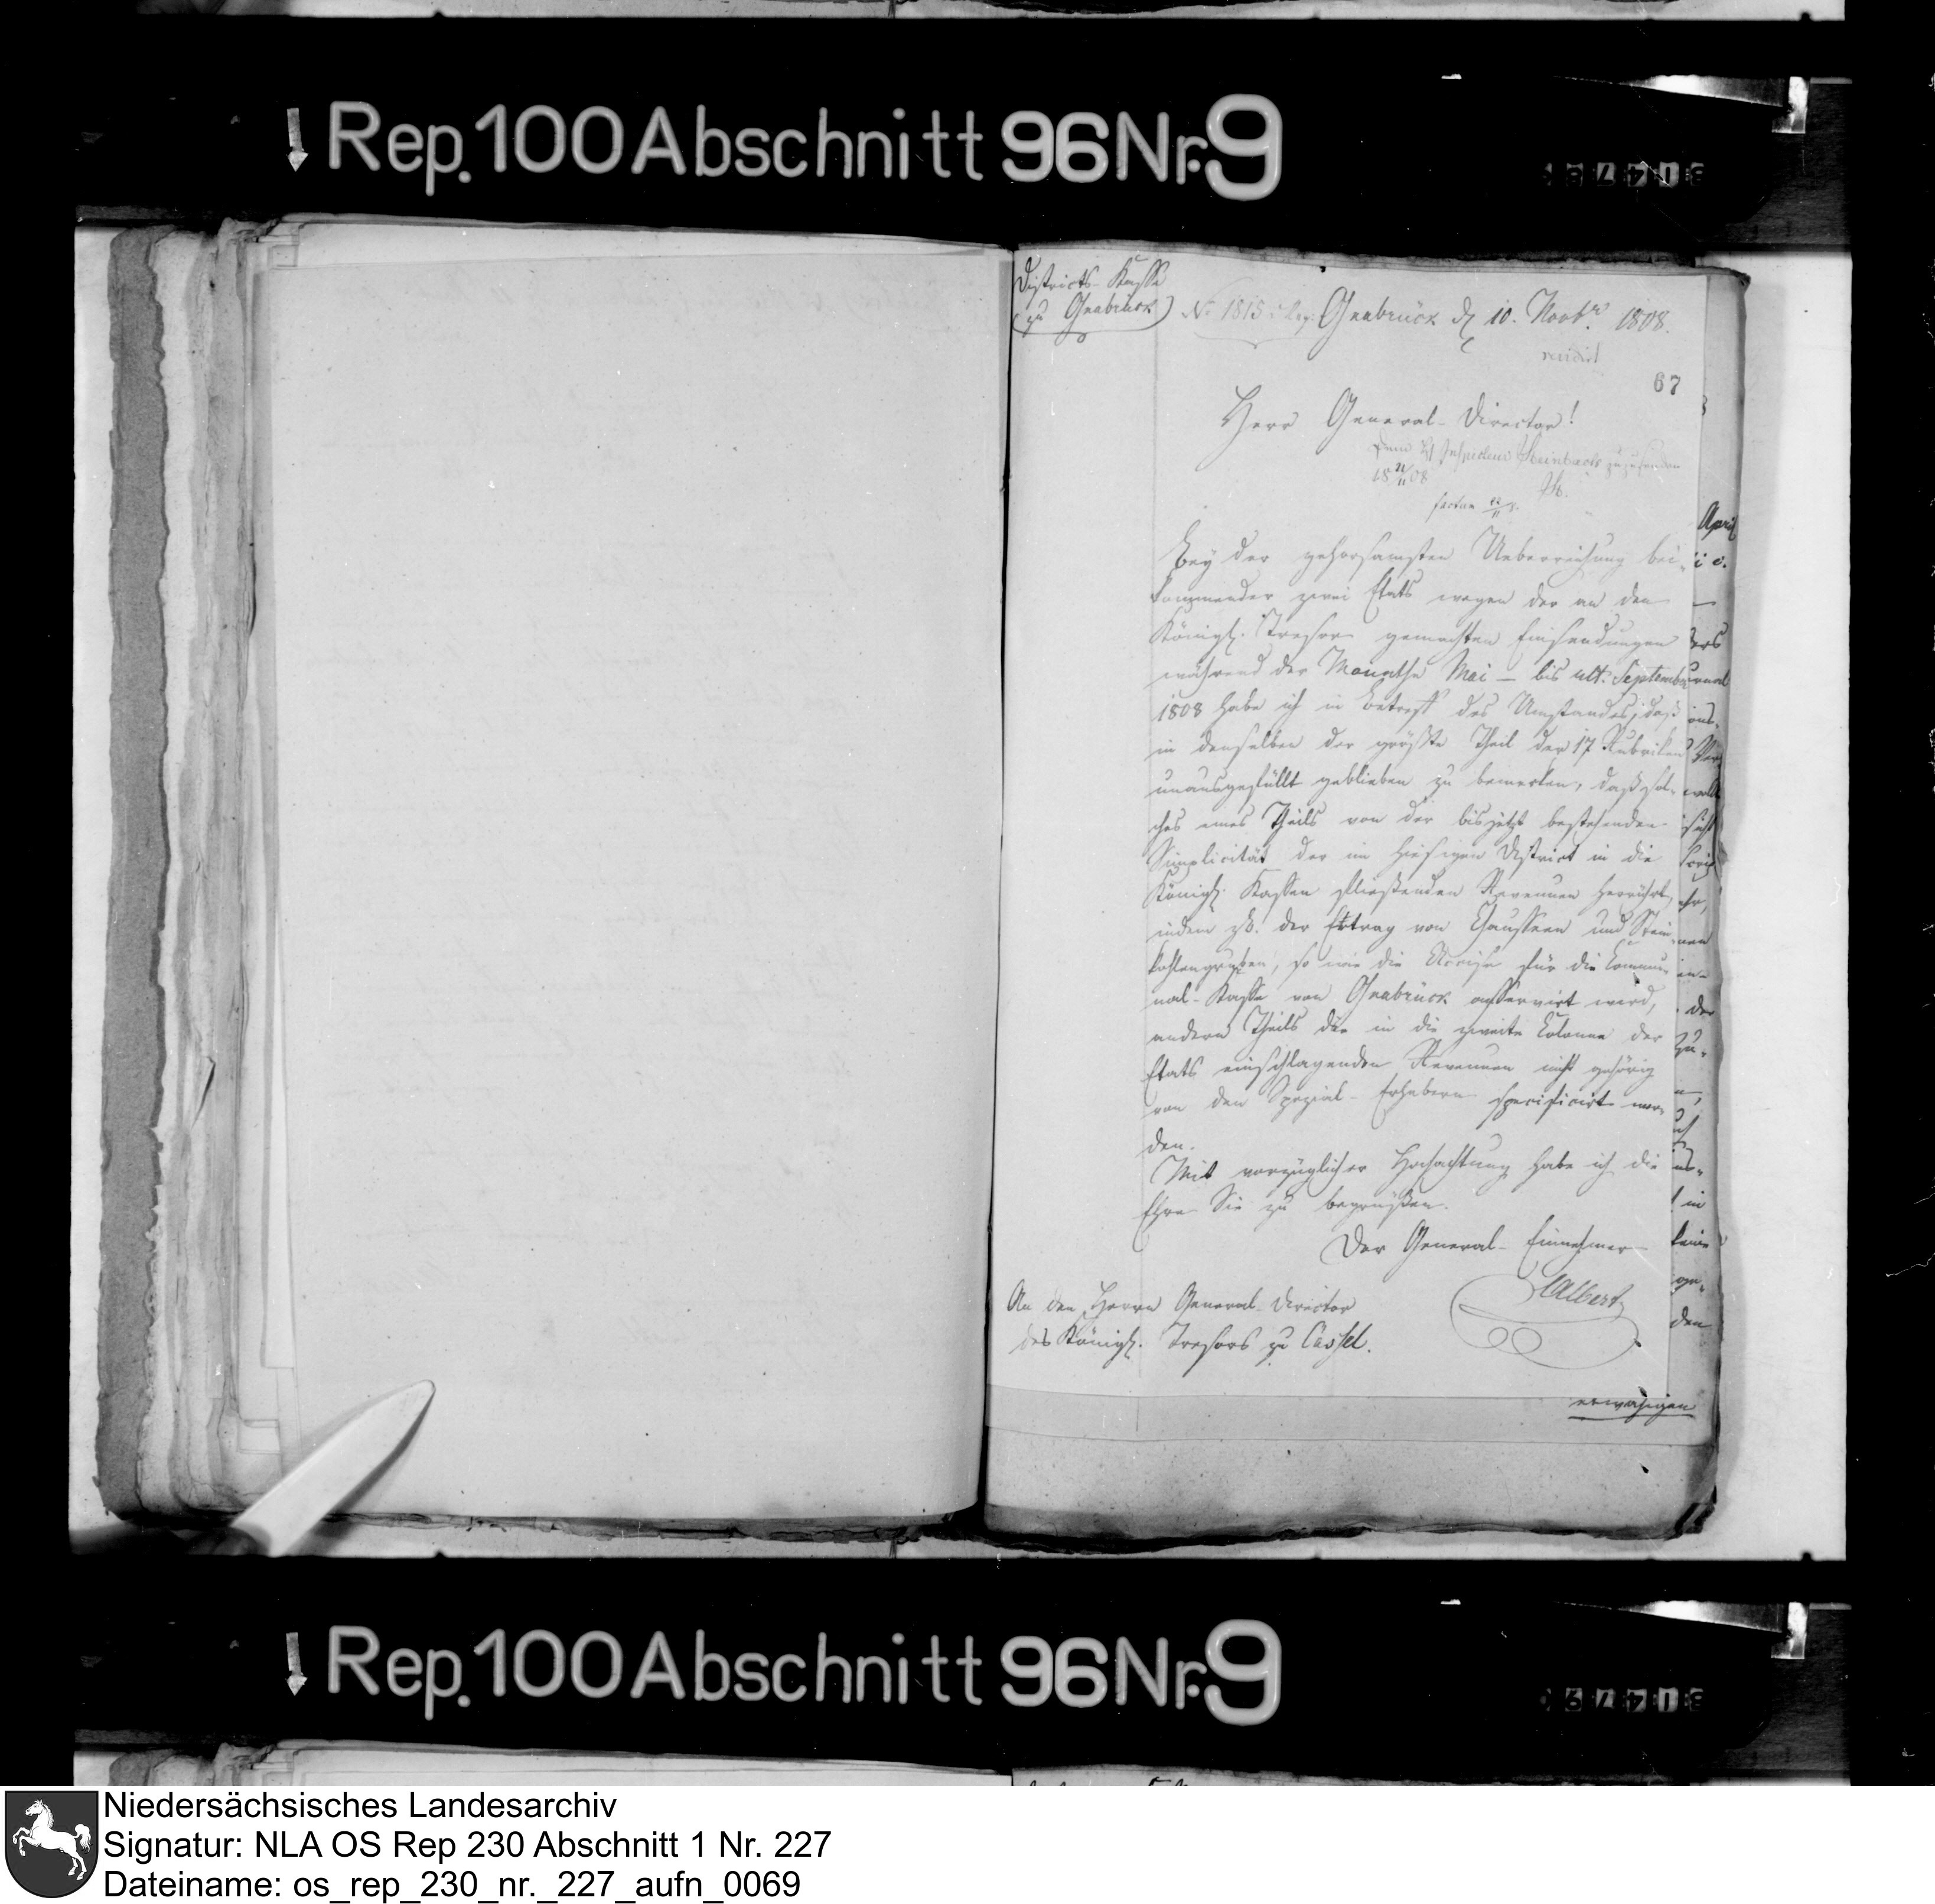 Rep. 100 Abschnitt 96 Nr. 9
Districts-Kasse
zu Osnabrück
No 1815. Osnabrück d 10. Novbr 1808.
67
Herr General-Director!
Dem Inspecteur zuzusenden
18 21/11 08
factum 22/11
Bey der gehorsamsten Ueberreichung bei-
kommender zwei Etats wegen der an den
Königl. Tresor gemachten Einsendungen
während der Monathe Mai – bis ult. September
1808 habe ich in Betreff des Umstandes, daß
in denselben der größte Theil der 17 Rubriken
unausgefüllt geblieben zu bemerken, daß sol-
ches eines Theils von der bisjetzt bestehenden
Simplicität der im hiesigen District in die
Königl. Kassen fließenden Revenuen herrührt,
indem zB. der Ertrag von Chausseen und Stein-
kohlengruben, so wie die Accise für die Commu-
nal-Kasse von Osnabrück asservirt wird,
andern Theils die in die zweite Colonne der
Etats einschlagenden Revenuen nicht gehörig
von den Spezial-Erhebern specificirt wer-
den.
Mit vorzüglicher Hochachtung habe ich die
Ehre Sie zu begrüßen.
Der General-Einnehmer
Halbert
An den Herrn General-Director
des Königl. Tresors zu Cassel.
April
den
Rep. 100 Abschnitt 96 Nr. 9
Niedersächsisches Landesarchiv
Signatur: NLA OS Rep 230 Abschnitt 1 Nr. 227
Dateiname: os_rep_230_nr._227_aufn_0069